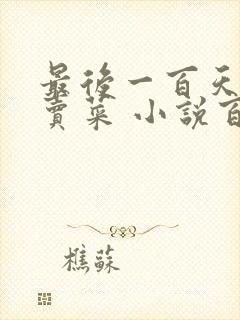 最後一百天
賣菜 小說百
樵蘇